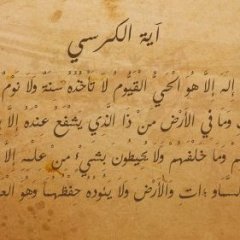 آية الكرسي
إله إلَّا هُوَ الحَيُّ القَيُّومُ لَا تَأْخُذُهُ سِنَةٌ وَلَا نَوْمٌ
وَمَا فِي الأَرْضِ مَن ذَا الَّذِي يَشْفَعُ عِنْدَهُ إِلَّا
وَمَا خَلْفَهُم وَلَا يُحِيطُونَ بِشَيْءٍ مِنْ عِلْمِهِ إِلَّا
وَالأَرْضَ وَلَا يَئُودُهُ حِفْظُهُمَا وَهُوَ